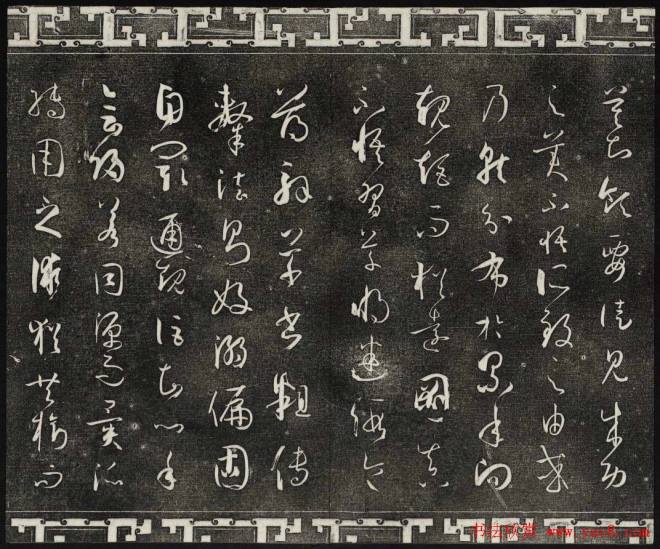 莫知領要徒見成功
之美不悟所致之由或
乃就分布於累年向
規矩而猶遠圖真
不悟習草將迷假令
薄解草書粗傳
隸法則好溺偏固
自閡通規詎知心手
會歸若同源而異派
轉用之術猶共樹而
书法欣赏 www.yac8.com